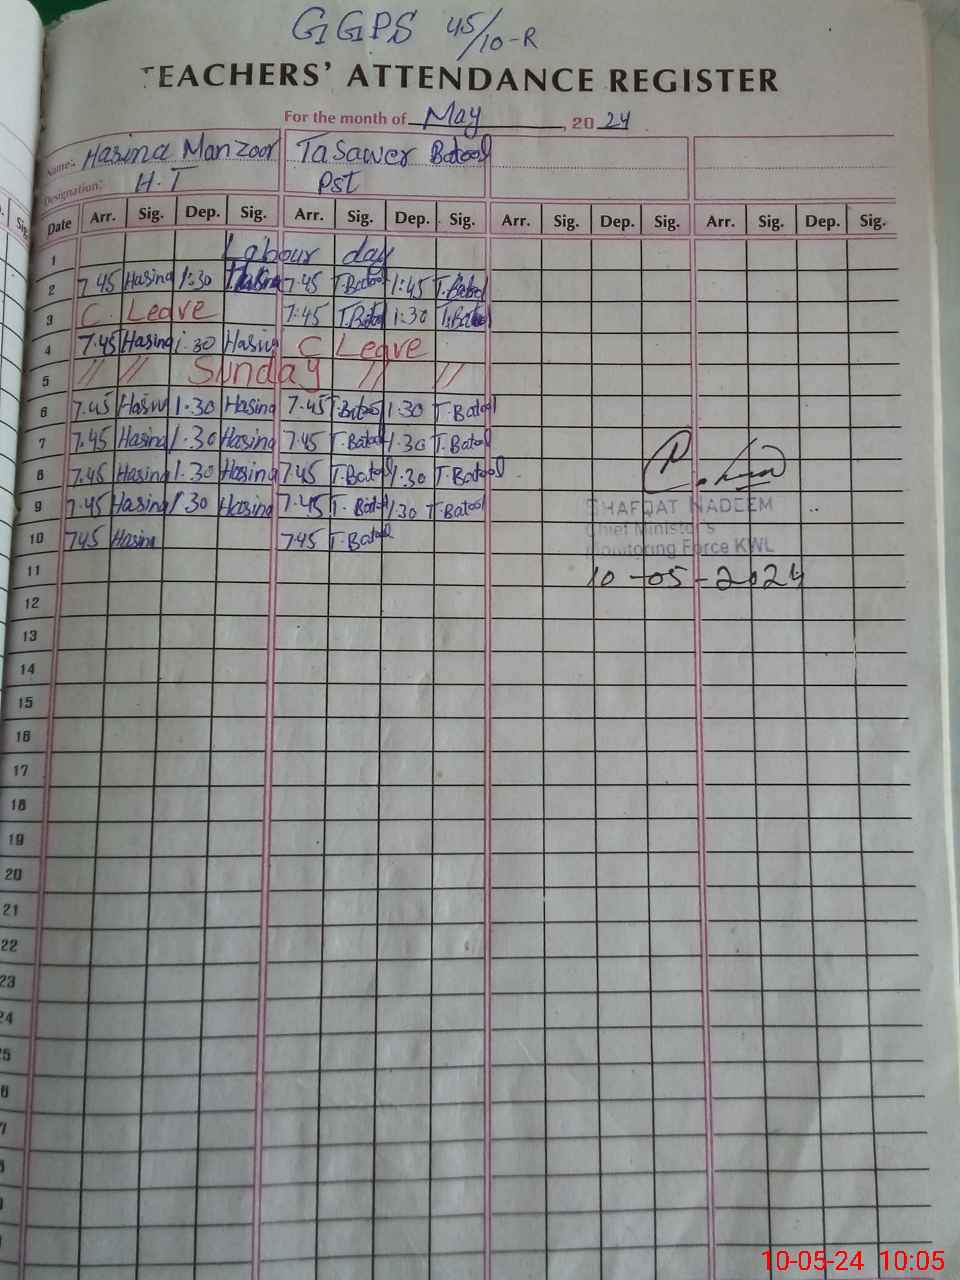 GGPS 45/10-R
TEACHERS' ATTENDANCE REGISTER
For the month of May, 20 24
Name:- Hasina Manzoor Tasawer Batool
Designation:- H.T Pst
Date Arr. Sig. Dep. Sig. Arr. Sig. Dep. Sig. Arr. Sig. Dep. Sig. Arr. Sig. Dep. Sig.
1 Labour day
2 7.45 Hasina 1:30 Hasina 7.45 T.Batool 1:45 T.Batool
3 C. Leave 7:45 T.Batool 1:30 T.Batool
4 7.45 Hasina 1.30 Hasina C Leave
5 // // Sunday // //
6 7.45 Hasina 1.30 Hasina 7.45 T.Batool 1.30 T.Batool
7 7.45 Hasina 1.30 Hasina 7.45 T.Batool 1.30 T.Batool
8 7.45 Hasina 1.30 Hasina 7.45 T.Batool 1.30 T.Batool
9 7.45 Hasina 1.30 Hasina 7.45 T.Batool 1.30 T.Batool
SHAFQAT NADEEM
Chief Minister's
10 745 Hasina 745 T.Batool
Monitoring Force KWL
11 10-05-2024
12
13
14
15
16
17
18
19
20
21
22
23
24
10-05-24 10:05